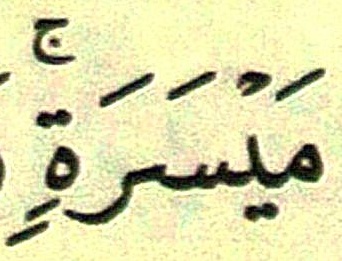 مَيْسَرَةٍۚ